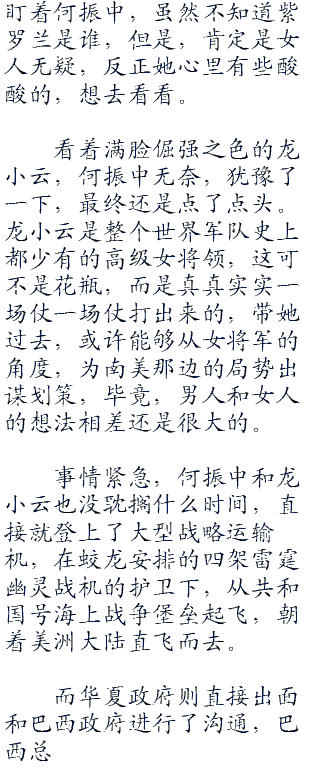 盯着何振中，虽然不知道紫
罗兰是谁，但是，肯定是女
人无疑，反正她心里有些酸
酸的，想去看看。
看着满脸倔强之色的龙
小云，何振中无奈，犹豫了
一下，最终还是点了点头。
龙小云是整个世界军队史上
都少有的高级女将领，这可
不是花瓶，而是真真实实一
场仗一场仗打出来的，带她
过去，或许能够从女将军的
角度，为南美那边的局势出
谋划策，毕竟，男人和女人
的想法相差还是很大的。
事情紧急，何振中和龙
小云也没耽搁什么时间，直
接就登上了大型战略运输
机，在蛟龙安排的四架雷霆
幽灵战机的护卫下，从共和
国号海上战争堡垒起飞，朝
着美洲大陆直飞而去。
而华夏政府则直接出面
和巴西政府进行了沟通，巴
西总